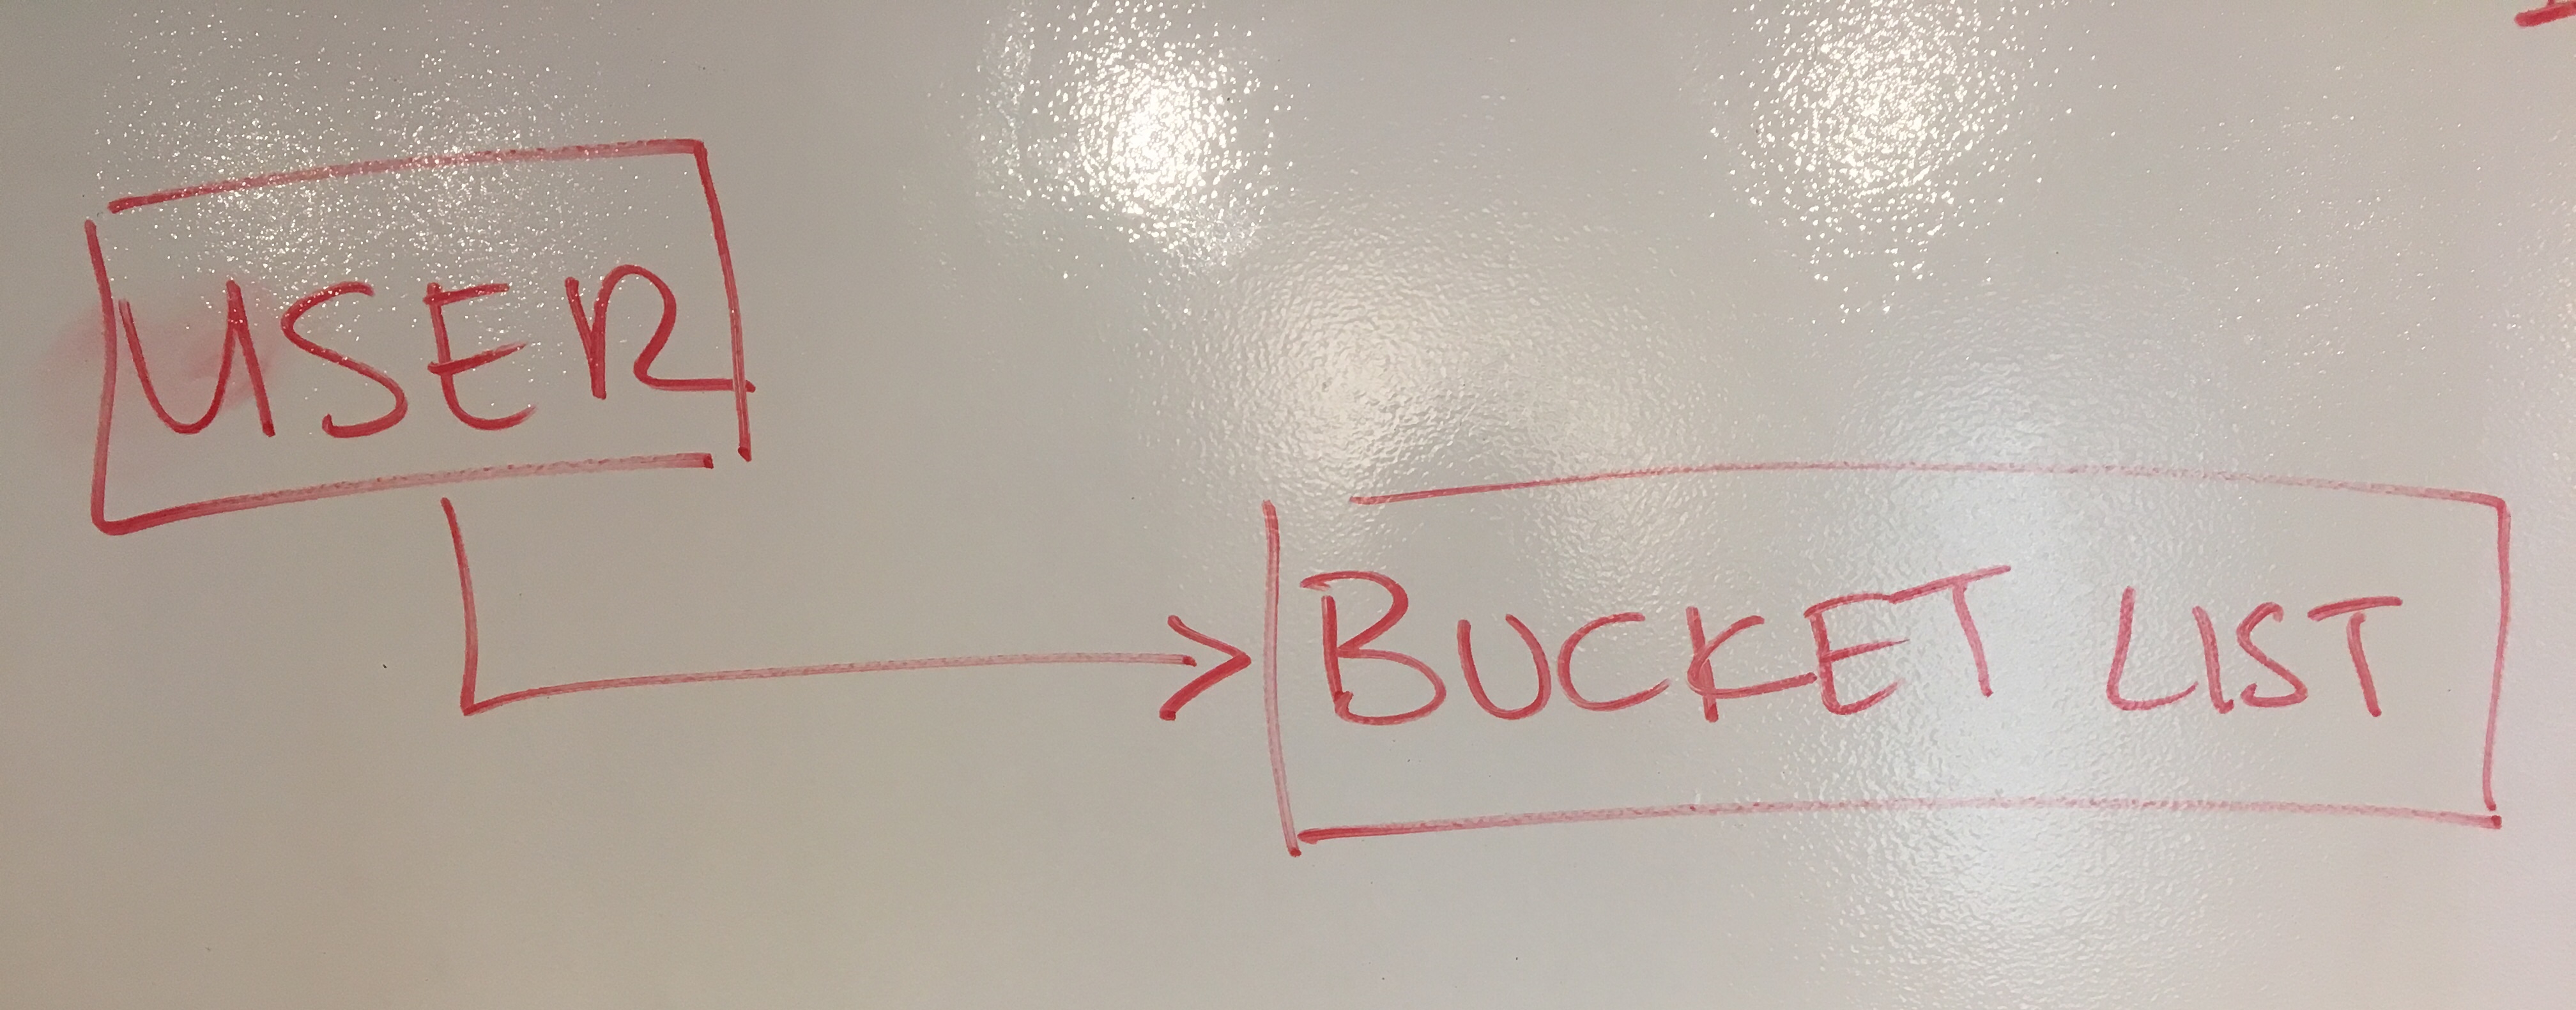 USER
BUCKET LIST